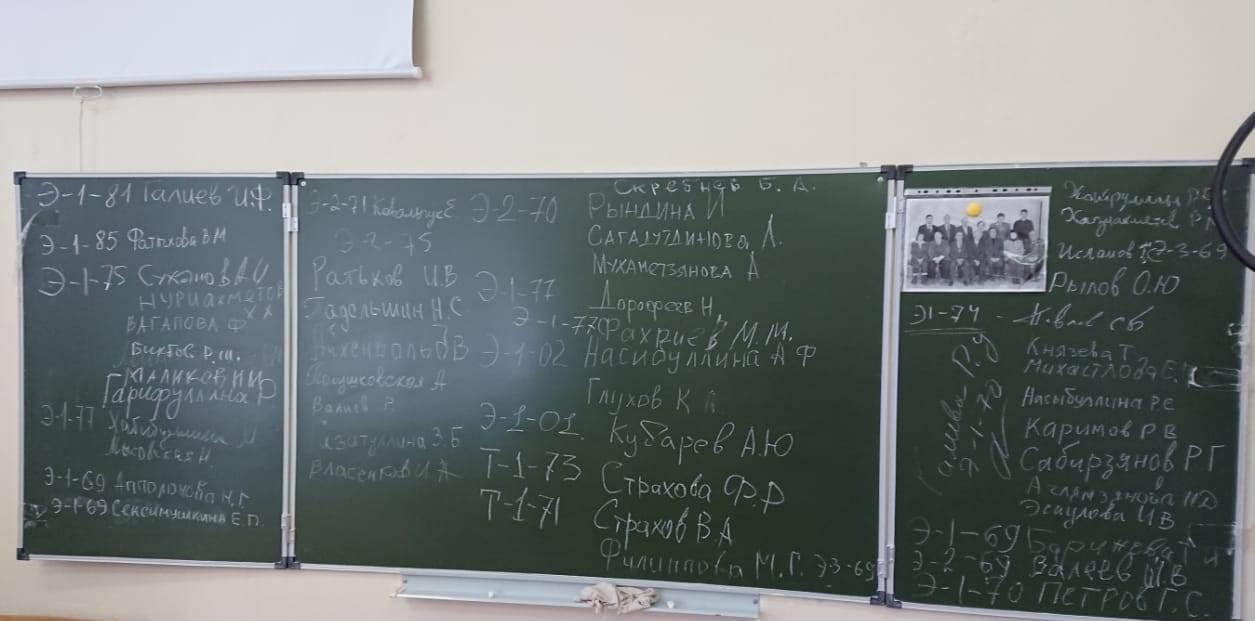 Э-1-81 Галиев И.Ф.
Э-1-85 Фатыхова В М
Э-1-75 Суханов А И
Нуриахметов
Х Х
Вагапова Ф
Биктов Р.Ш.
Маликов Н И
Гарифуллина Р.
Э-1-77
Мысовская Н.
Э-1-69 Апполонова Н.Г.
Э-1-69 Сексимушкина Е.П.
Э-2-71
Э-2-75
Ратьков И.В
Гадельшин Н.С.
Полушковская А
Валиев Р.
Изатуллина З.Б
Власенков И.А
Скребнев Б. А.
Э-2-70 Рындина И
Сагадутдинова Л.
Мухаметзянова А
Э-1-77 Дорофеев Н
Э-1-77 Фахриев М.М.
Э-1-02 Насибуллина А Ф
Глухов К
Э-1-01. Кубарев А.Ю
Т-1-73 Страхова Ф.Р
Т-1-71 Страхов В.А
Филиппова М.Г. Э-3-69
Исламов Э-3-69
Рылов О.Ю
Э1-74 -
Князева Т
Насыбуллина Р Е
Каримов Р В
Сабирзянов Р Г
Эсаулова И В
Э-1-70
Э-1-69
Э-2-69 Валеев И.В
Э-1-70 Петров Г.С.